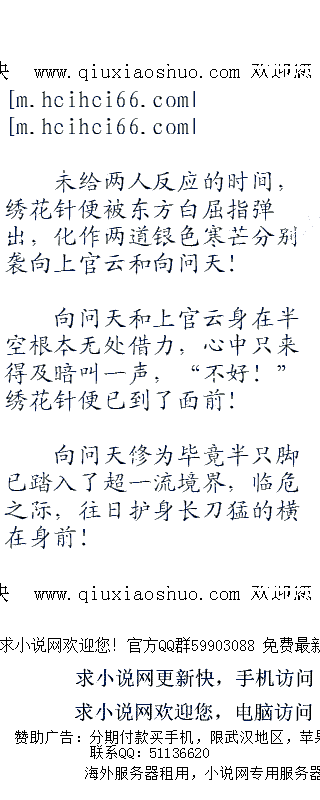 快 www.qiuxiaoshuo.com 欢迎您
[m.hcihci66.com]
[m.hcihci66.com]
未给两人反应的时间，
绣花针便被东方白屈指弹
出，化作两道银色寒芒分别
袭向上官云和向问天！
向问天和上官云身在半
空根本无处借力，心中只来
得及暗叫一声，“不好！”
绣花针便已到了面前！
向问天修为毕竟半只脚
已踏入了超一流境界，临危
之际，往日护身长刀猛的横
在身前！
快 www.qiuxiaoshuo.com 欢迎您
求小说网欢迎您！官方QQ群59903088 免费最新
求小说网更新快，手机访问
求小说网欢迎您，电脑访问
赞助广告：分期付款买手机，限武汉地区，苹果
联系QQ：51136620
海外服务器租用，小说网专用服务器